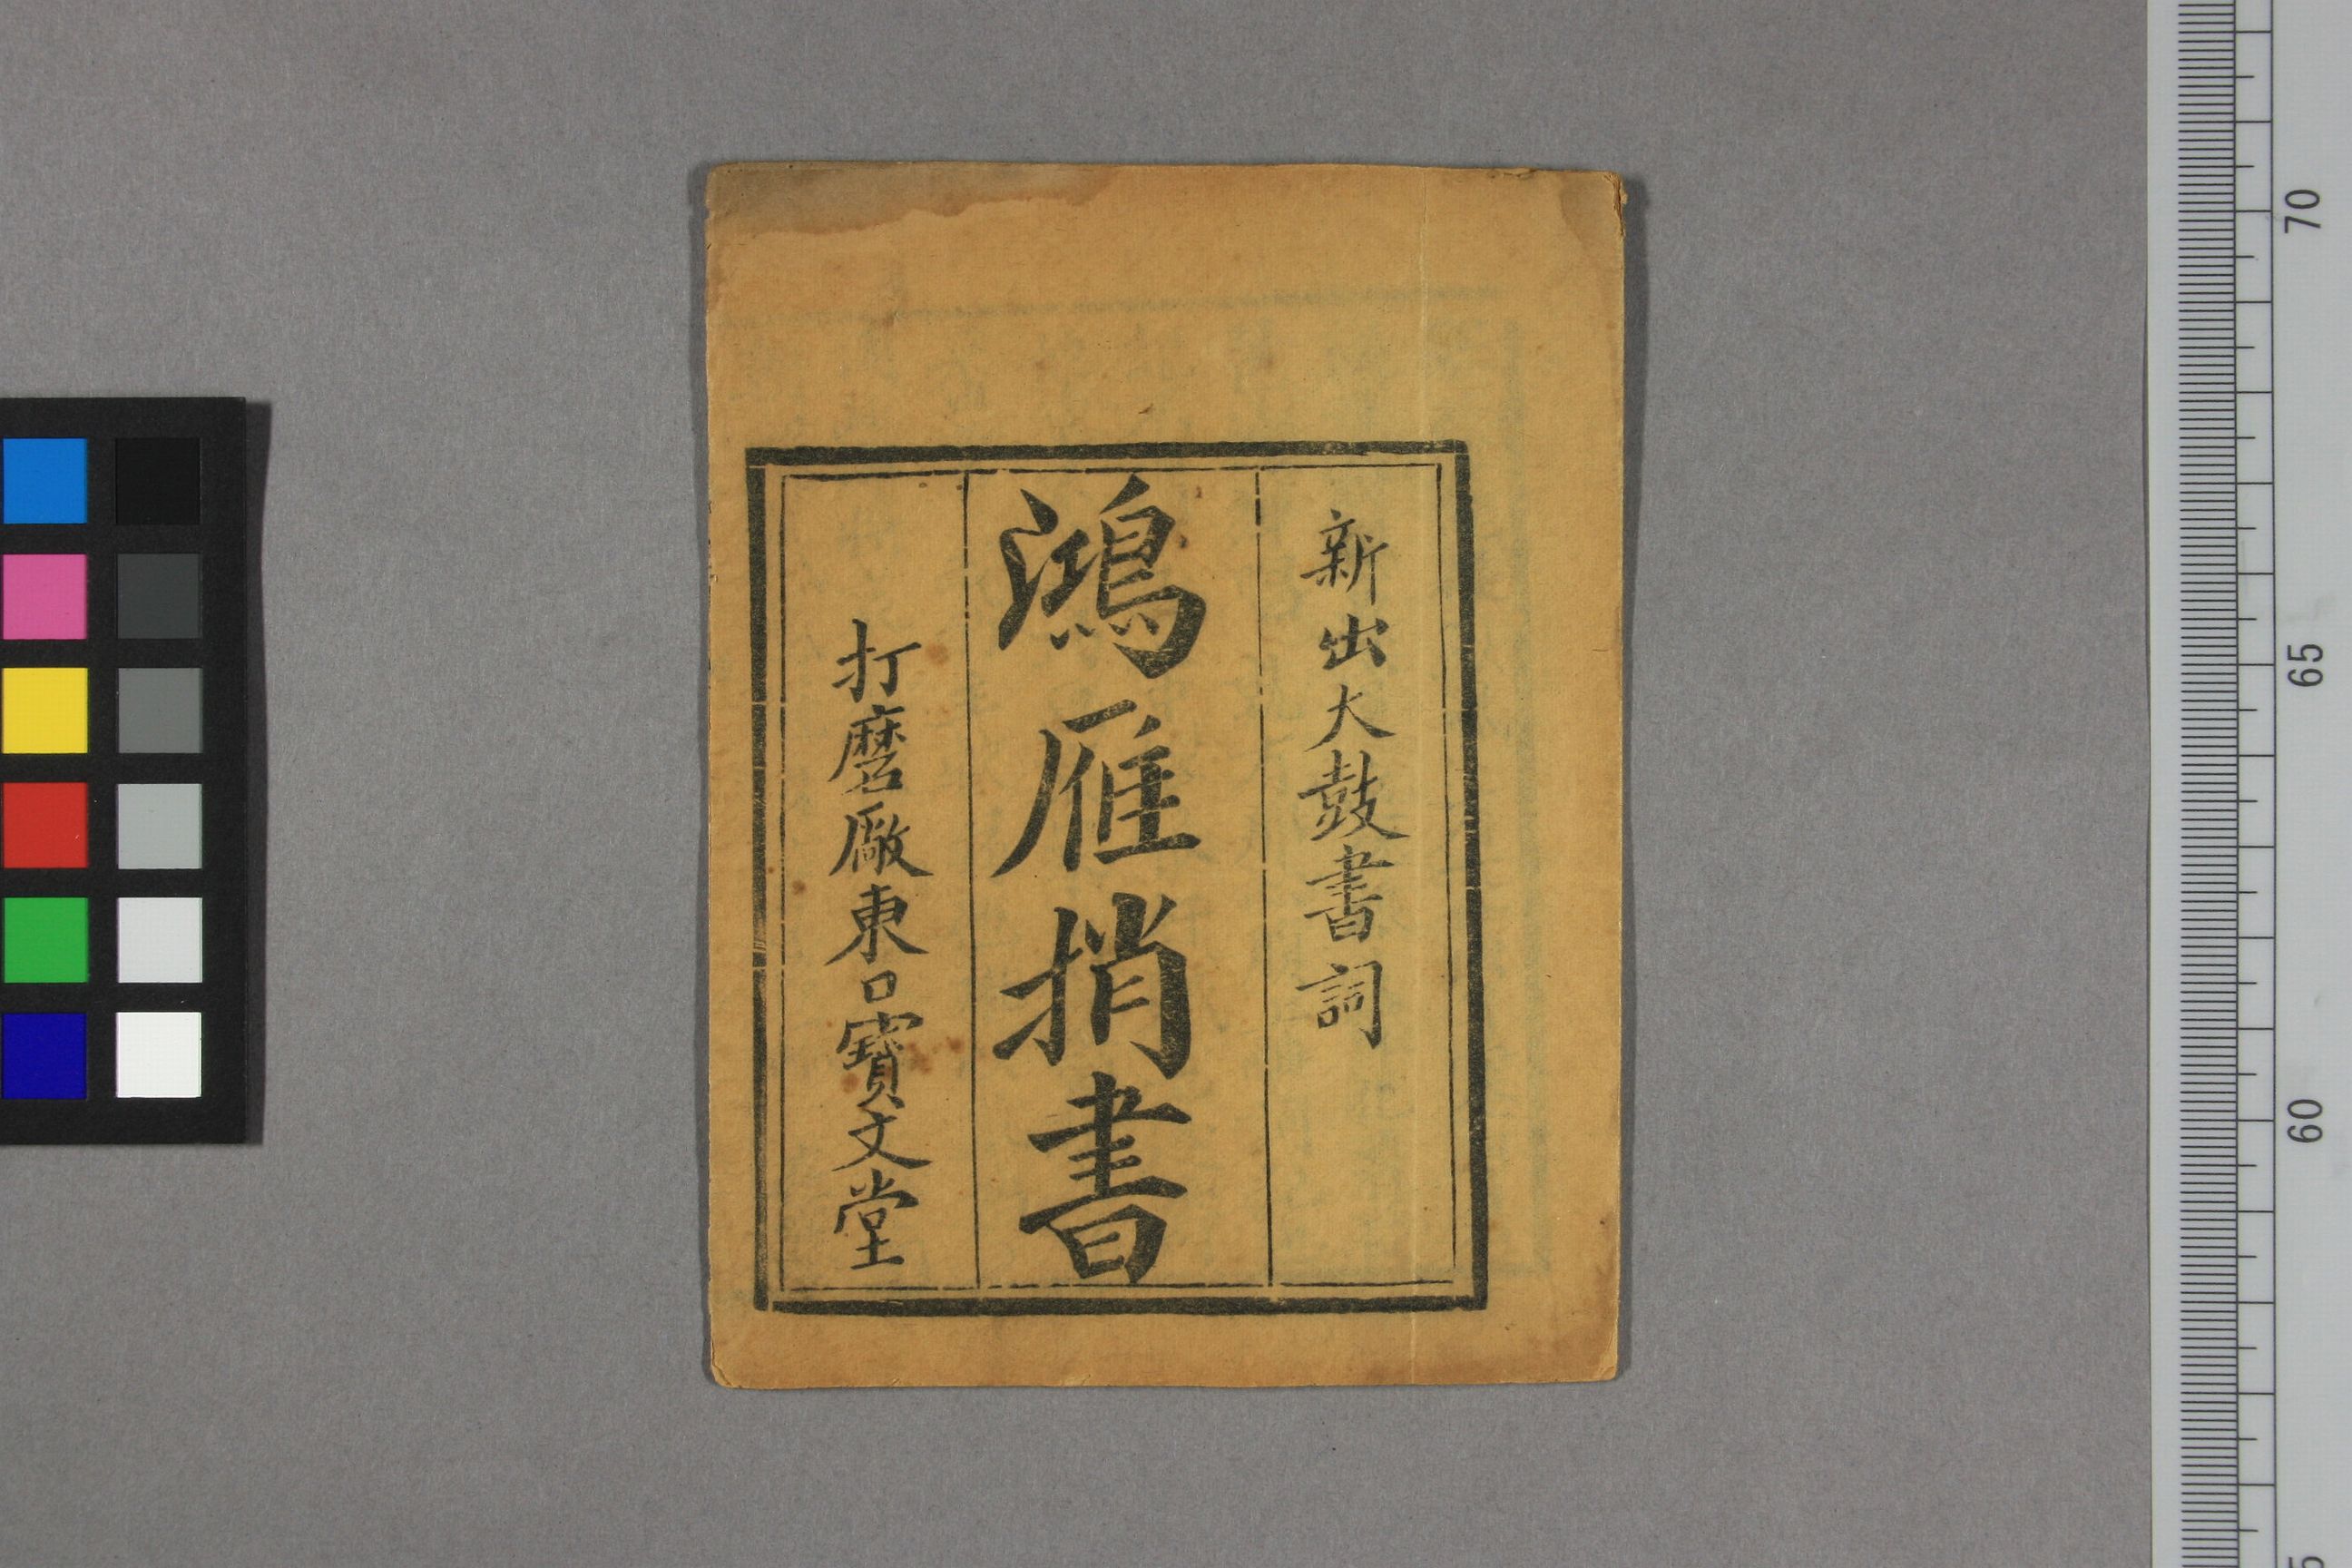 新出大鼓書詞
鴻雁捎書
打磨廠東口寶文堂
70
65
60